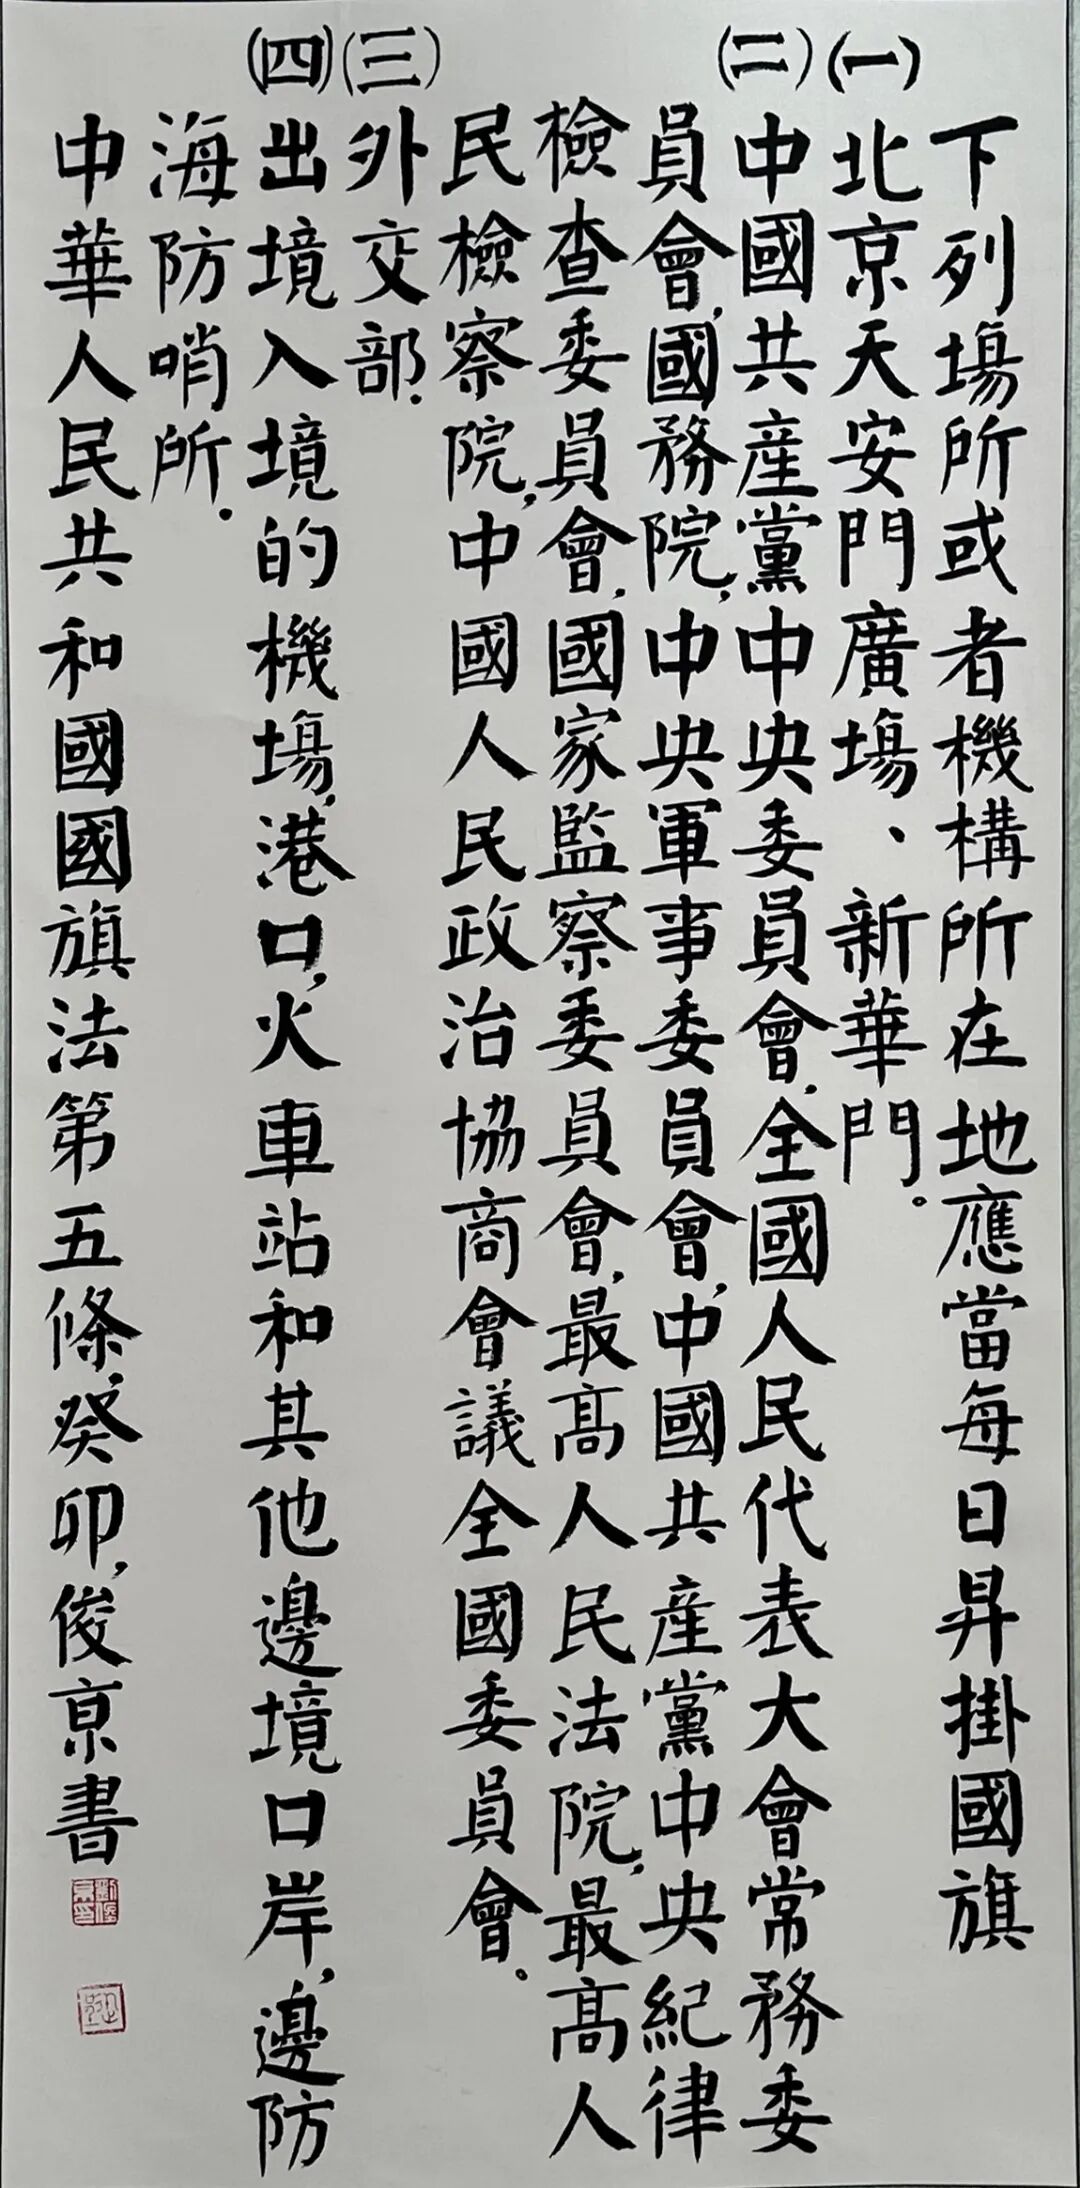 下列場所或者機構所在地應當每日昇掛國旗
(一)北京天安門廣場、新華門。
(二)中國共産黨中央委員會,全國人民代表大會常務委
員會,國務院,中央軍事委員會,中國共産黨中央紀律
檢查委員會,國家監察委員會,最高人民法院,最高人
民檢察院,中國人民政治協商會議全國委員會。
(三)外交部.
(四)出境入境的機場,港口,火車站和其他邊境口岸,邊防
海防哨所.
中華人民共和國國旗法第五條,癸卯,俊京書